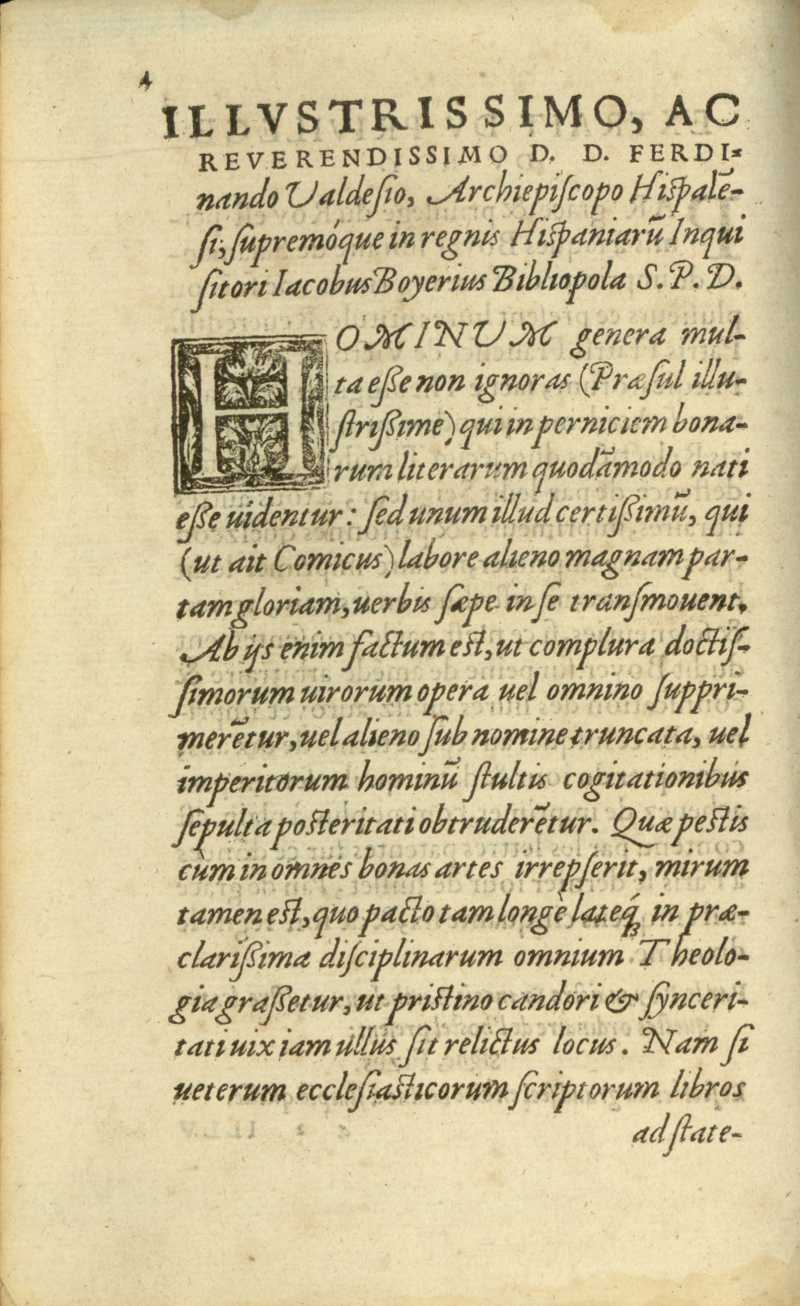 4
ILLVSTRISSIMO, AC
REVERENDISSIMO D. D. FERDI-
nando Ualdeſio, Archiepiſcopo Hiſpalē-
ſi, ſupremóque in regnis Hiſpaniarū Inqui
ſitori Iacobus Boyerius Bibliopola S. P. D.
HOMINUM genera mul-
ta eſſe non ignoras (Præſul illu-
ſtriſſime) qui in perniciem bona-
rum literarum quodāmodo nati
eſſe uidentur: ſed unum illud certiſſimū, qui
(ut ait Comicus) labore alieno magnam par-
tam gloriam, uerbis ſæpe in ſe tranſmouent.
Ab ijs enim factum eſt, ut complura doctiſ-
ſimorum uirorum opera uel omnino ſuppri-
merētur, uel alieno ſub nomine truncata, uel
imperitorum hominū ſtultis cogitationibus
ſepulta poſteritati obtruderētur. Quæ peſtis
cùm in omnes bonas artes irrepſerit, mirum
tamen eſt, quo pacto tam longè lateq́; in præ-
clariſſima diſciplinarum omnium Theolo-
gia graſſetur, ut priſtino candori & ſynceri-
tati uix iam ullus ſit relictus locus. Nam ſi
ueterum eccleſiaſticorum ſcriptorum libros
ad ſtate-